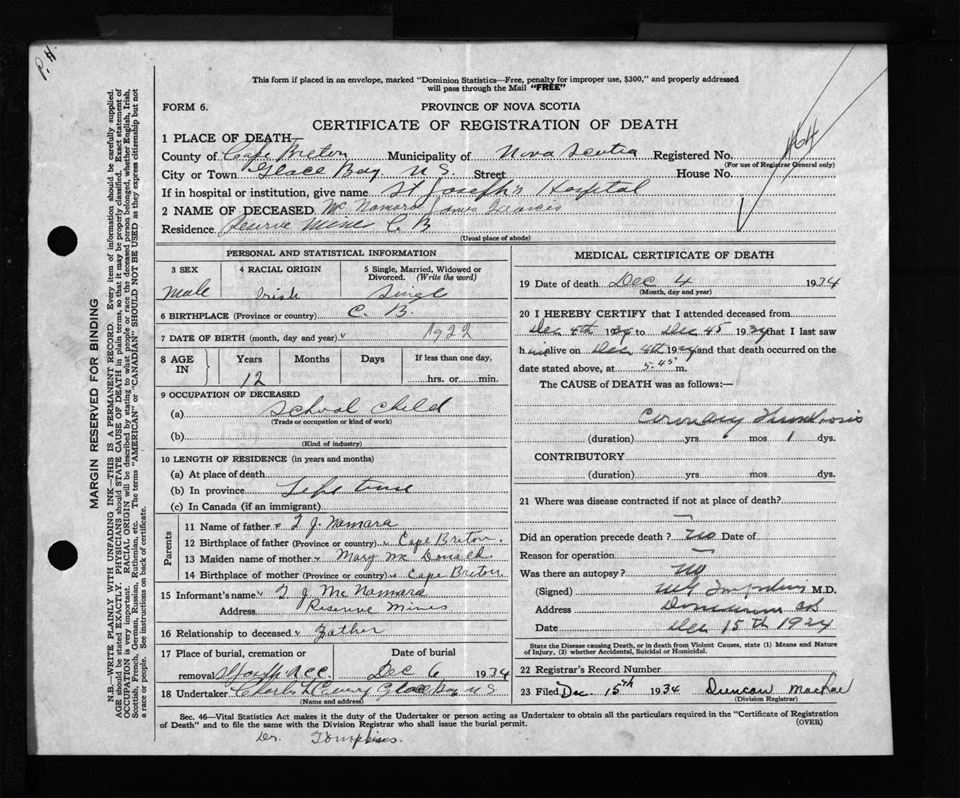 P. H.
This form if placed in an envelope, marked "Dominion Statistics—Free, penalty for improper use, $300," and properly addressed
will pass through the Mail "FREE"
FORM 6.
PROVINCE OF NOVA SCOTIA
CERTIFICATE OF REGISTRATION OF DEATH
1 PLACE OF DEATH—
County of Cape Breton Municipality of Nova Scotia Registered No.
(For use of Registrar General only)
City or Town Glace Bay N.S. Street House No.
If in hospital or institution, give name St Joseph's Hospital
2 NAME OF DECEASED Mc Namara James Francis
Residence Reserve Mines C B
(Usual place of abode)
PERSONAL AND STATISTICAL INFORMATION
3 SEX
Male
4 RACIAL ORIGIN
Irish
5 Single, Married, Widowed or Divorced. (Write the word)
Singl
6 BIRTHPLACE (Province or country) C. B.
7 DATE OF BIRTH (month, day and year) 1922
8 AGE IN Years Months Days If less than one day,
12 hrs. or min.
9 OCCUPATION OF DECEASED
(a) School child
(Trade or occupation or kind of work)
(b)
(Kind of industry)
10 LENGTH OF RESIDENCE (in years and months)
(a) At place of death
(b) In province Life time
(c) In Canada (if an immigrant)
Parents
11 Name of father T J. Namara
12 Birthplace of father (Province or country) Cape Breton.
13 Maiden name of mother Mary Mc Donald
14 Birthplace of mother (Province or country) Cape Breton
15 Informant's name T J Mc Namara
Address Reserve Mines
16 Relationship to deceased Father
17 Place of burial, cremation or removal Date of burial
Dec 6 1934
18 Undertaker Charles Curry Glace Bay N S
(Name and address)
MEDICAL CERTIFICATE OF DEATH
19 Date of death Dec 4 1934
(Month, day and year)
20 I HEREBY CERTIFY that I attended deceased from
Dec 4th 1934 to Dec 1934 that I last saw
him alive on Dec 4th 1934 and that death occurred on the
date stated above, at 5.45 m.
The CAUSE of DEATH was as follows:—
Coronary Thrombosis
(duration) yrs mos 1 dys.
CONTRIBUTORY
(duration) yrs. mos. dys.
21 Where was disease contracted if not at place of death?
Did an operation precede death? No Date of
Reason for operation
Was there an autopsy? No
(Signed) M.D.
Address Dominion
Date Dec 15th 1934
State the Disease causing Death, or in death from Violent Causes, state (1) Means and Nature
of Injury, (2) whether Accidental, Suicidal or Homicidal.
22 Registrar's Record Number
23 Filed Dec. 15th 1934 Duncan MacRae
(Division Registrar)
Sec. 46—Vital Statistics Act makes it the duty of the Undertaker or person acting as Undertaker to obtain all the particulars required in the "Certificate of Registration
of Death" and to file the same with the Division Registrar who shall issue the burial permit.
(OVER)
Dr. Tompkins.
MARGIN RESERVED FOR BINDING
N.B.—WRITE PLAINLY WITH UNFADING INK—THIS IS A PERMANENT RECORD. Every item of information should be carefully supplied.
AGE should be stated EXACTLY. PHYSICIANS should STATE CAUSE OF DEATH in plain terms, so that it may be properly classified. Exact statement of
OCCUPATION is very important. RACIAL ORIGIN will be described by stating to what people or race the deceased person belonged, whether English, Irish,
Scottish, French, German, Russian, Ruthenian, etc. The terms "AMERICAN" or "CANADIAN" SHOULD NOT BE USED as they express citizenship but not
a race or people. See instructions on back of certificate.